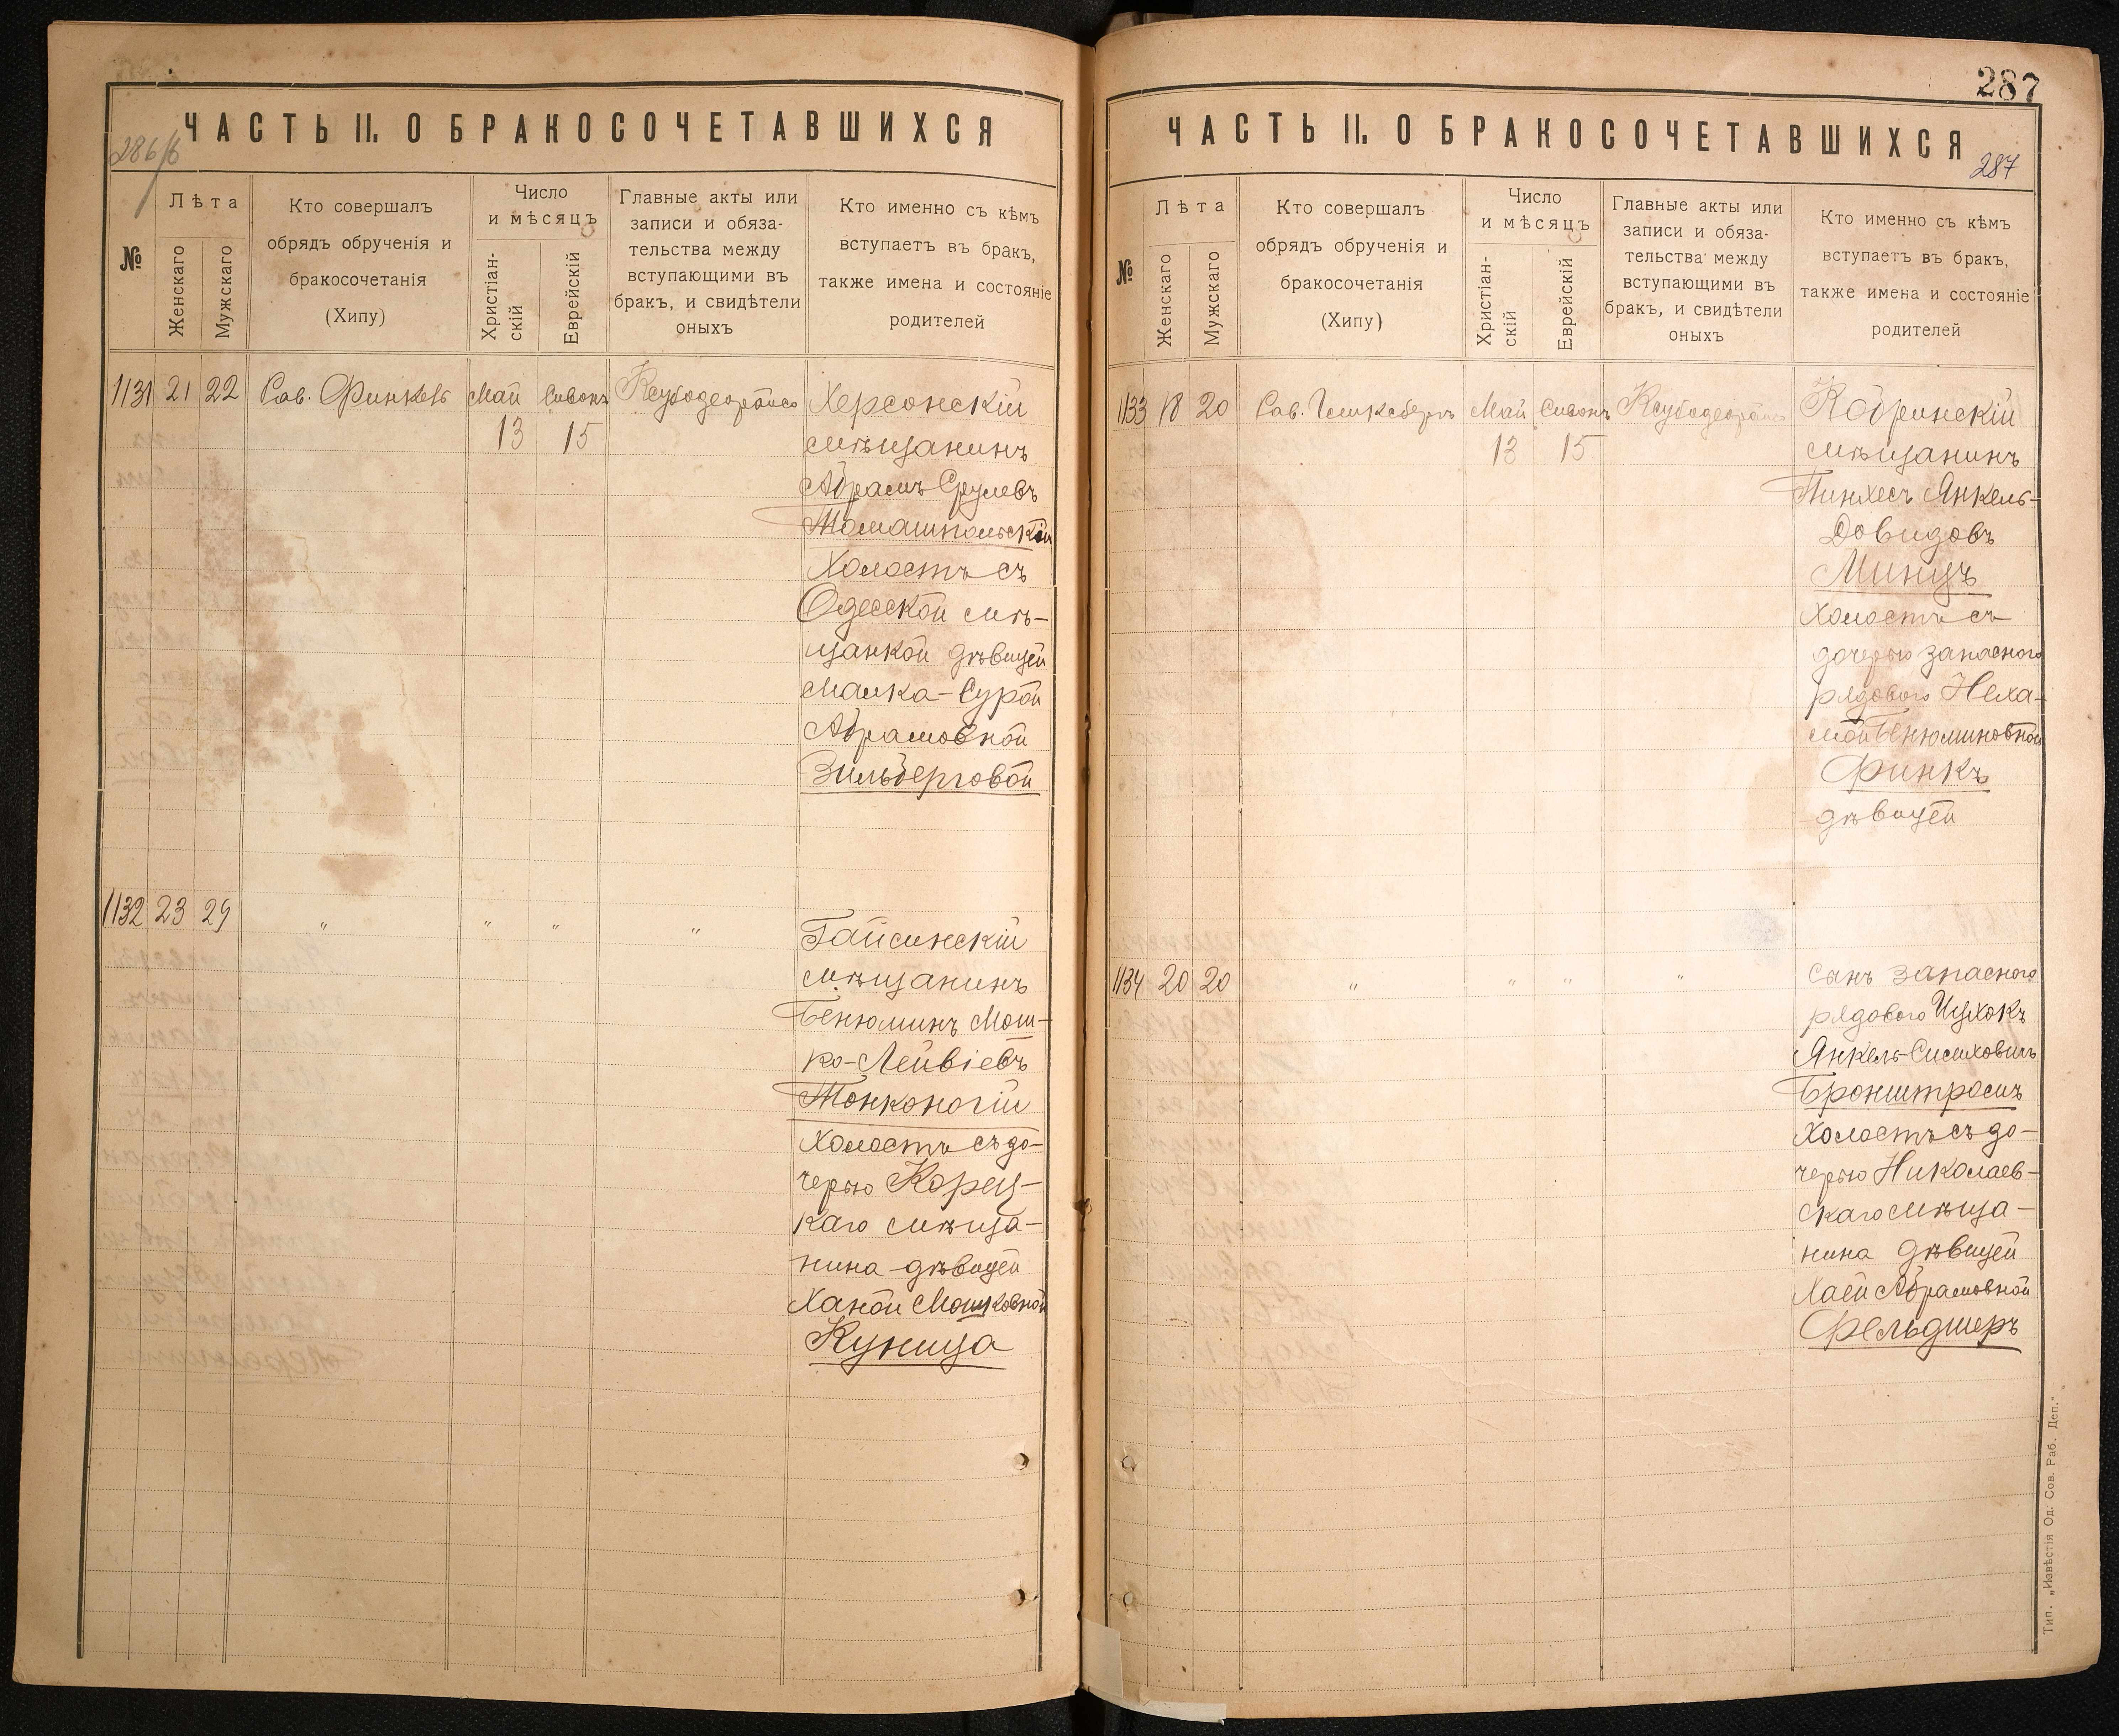 ЧАСТЬ II. О БРАКОСОЧЕТАВШИХСЯ
286/б
№
Лѣта
Женскаго
Мужскаго
Кто совершалъ
обрядъ обрученія и
бракосочетанія
(Хипу)
Число
и мѣсяцъ
Христіан-
скій
Еврейскій
Главные акты или
записи и обяза-
тельства между
вступающими въ
бракъ, и свидѣтели
оныхъ
Кто именно съ кѣмъ
вступаетъ въ бракъ,
также имена и состояніе
родителей
1131 21 22 Рав. Финкель Май 13 Сивонъ 15
Херсонскій
мѣщанинъ
Абрамъ Срулевъ
Томашпольскій
Холостъ съ
Одесской мѣ-
щанкой дѣвицей
Малка-Сурой
Абрамовной
Зильберговой
1132 23 29 " " " "
Гайсинскій
мѣщанинъ
Бенюминъ Мош-
ко-Лейвіевъ
Тонконогій
Холостъ съ до-
черью Корец-
каго мѣща-
нина дѣвицей
Ханой Мошковной
Куница
287
ЧАСТЬ II. О БРАКОСОЧЕТАВШИХСЯ
287
№
Лѣта
Женскаго
Мужскаго
Кто совершалъ
обрядъ обрученія и
бракосочетанія
(Хипу)
Число
и мѣсяцъ
Христіан-
скій
Еврейскій
Главные акты или
записи и обяза-
тельства между
вступающими въ
бракъ, и свидѣтели
оныхъ
Кто именно съ кѣмъ
вступаетъ въ бракъ,
также имена и состояніе
родителей
1133 18 20 Рав. Май 13 Сивонъ 15
Кобринскій
мѣщанинъ
Пинхесъ Янкель-
Довидовъ
Минцъ
Холостъ съ
дочерью запасного
рядового Неха-
мой Бенюминовной
Финкъ
дѣвицей
1134 20 20 " " " "
сынъ запасного
рядового Ицхокъ
Янкель-
Бронштромъ
Холостъ съ до-
черью Николаев-
скаго мѣща-
нина дѣвицей
Хаей Абрамовной
Фельдшеръ
Тип. „Извѣстія Од. Сов. Раб. Деп."